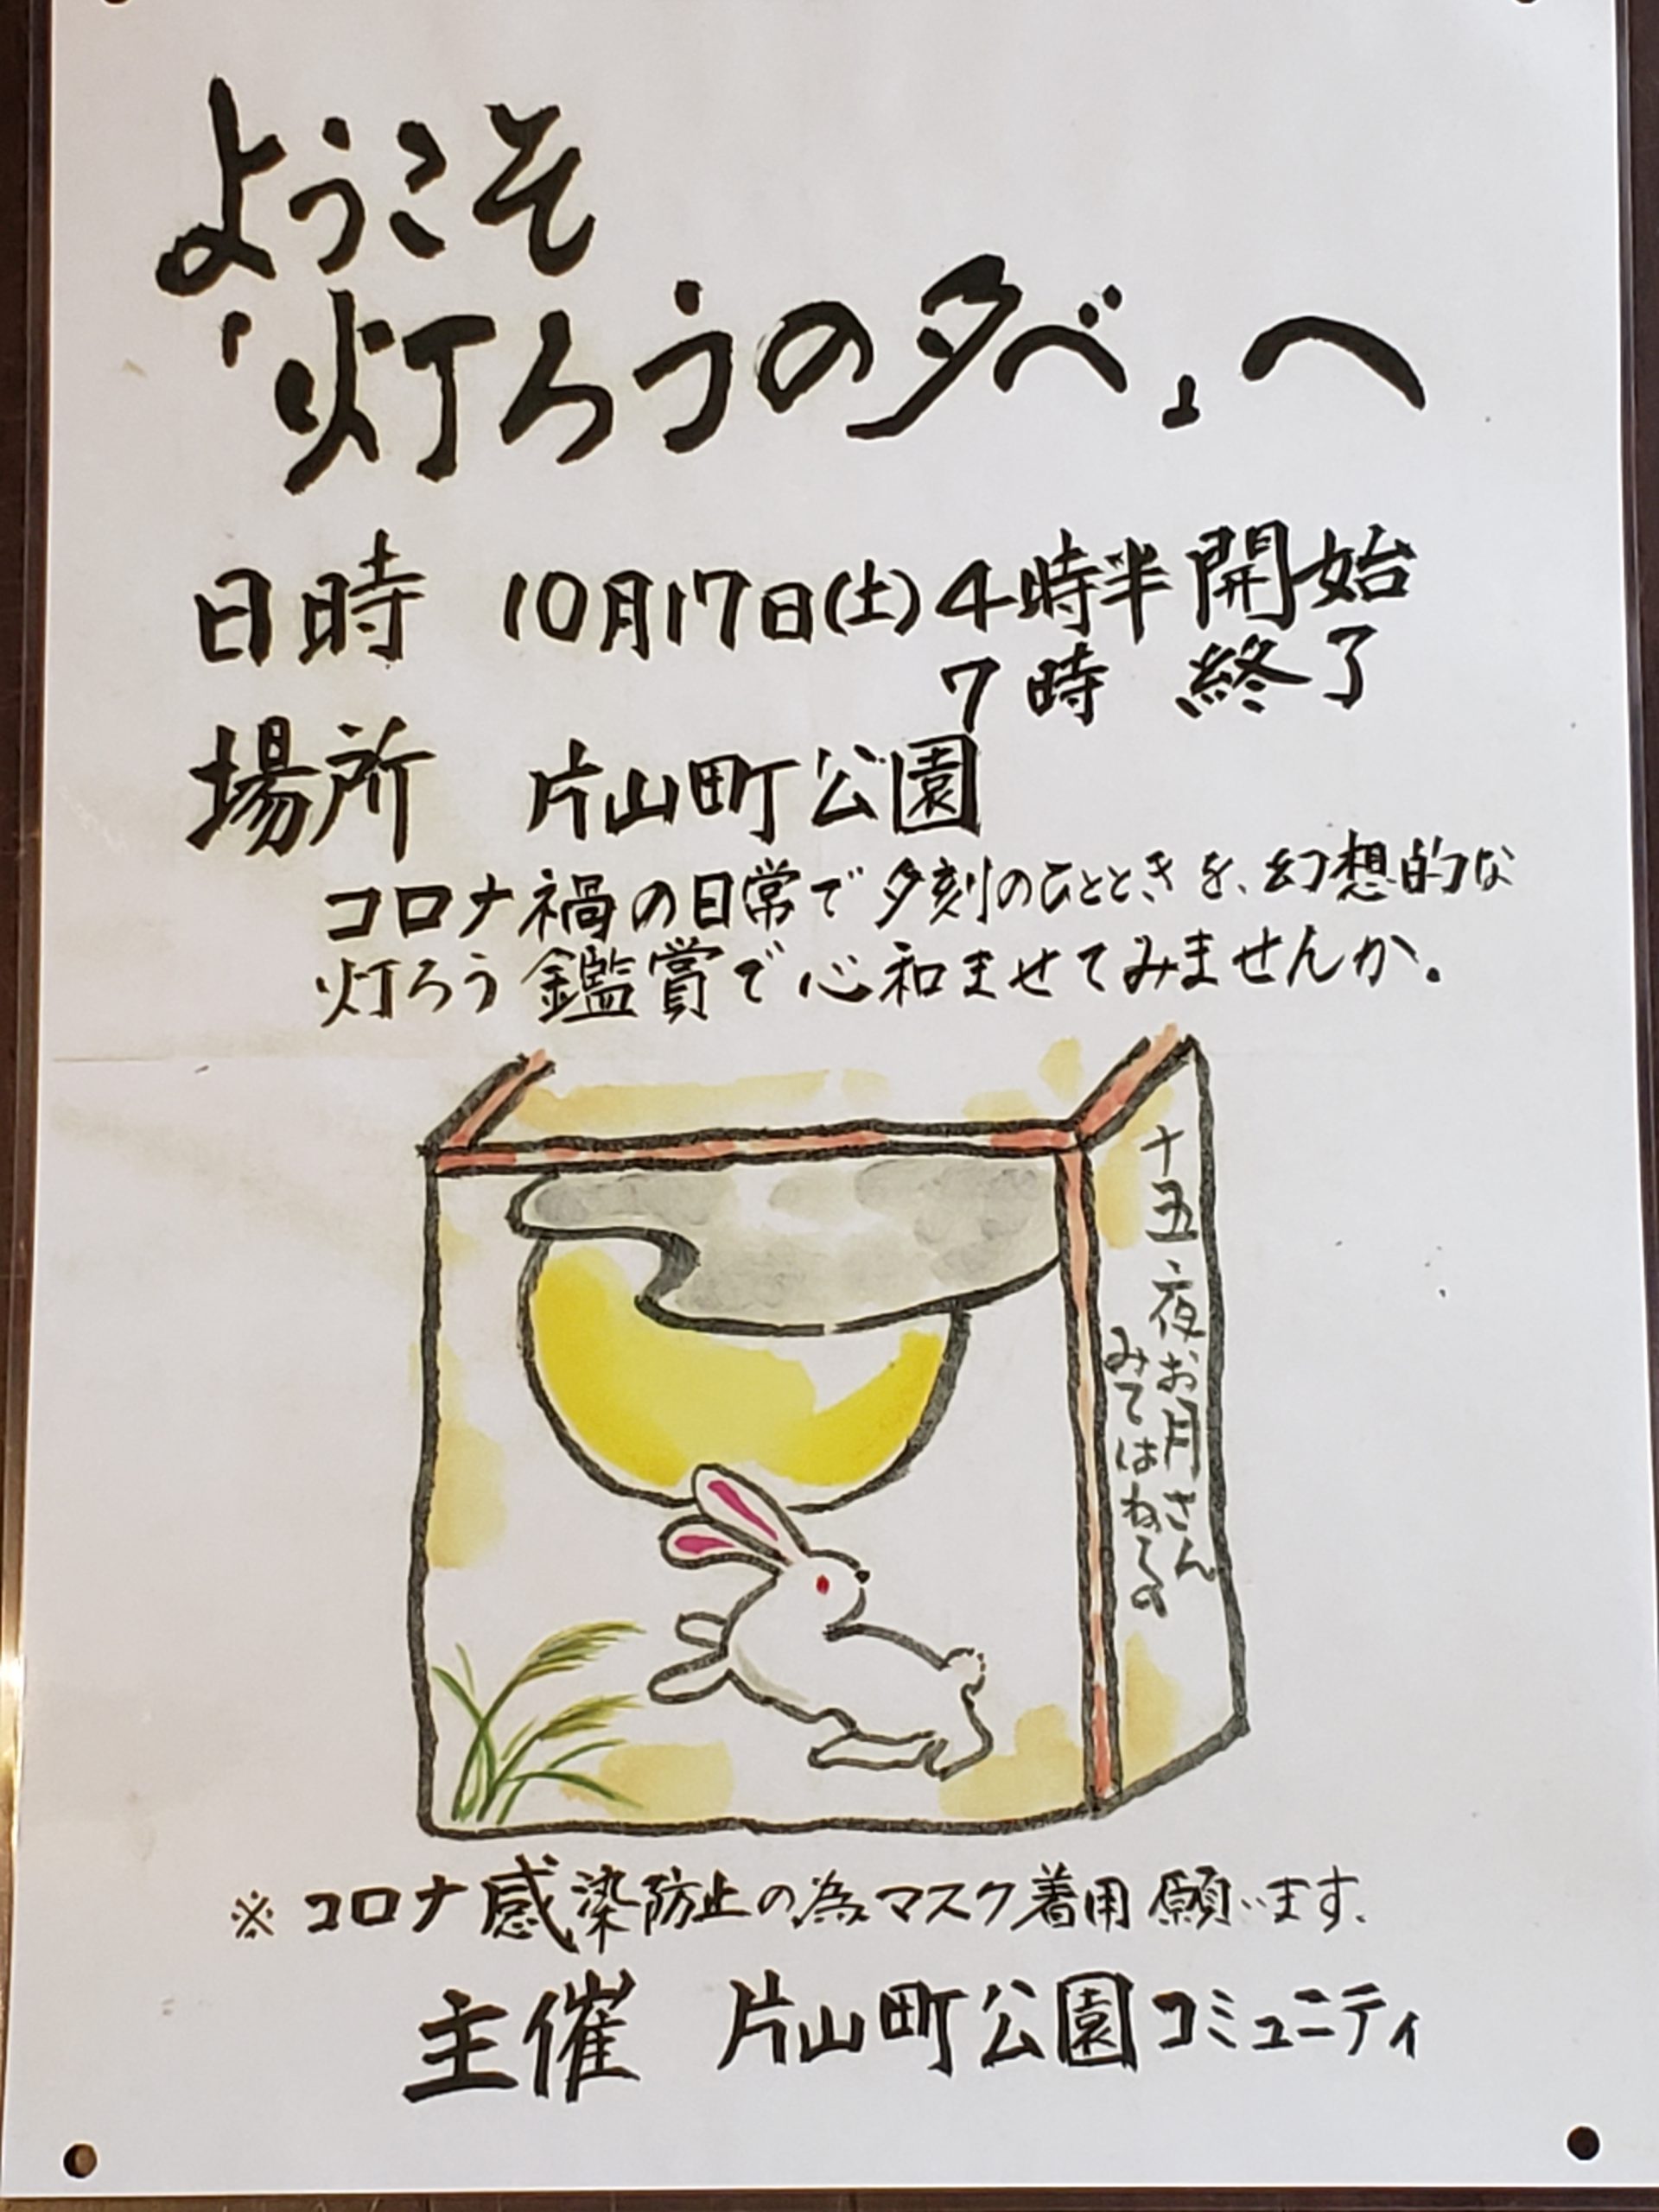 ようこそ
「灯ろうの夕べ」へ
日時 10月17日(土)4時半開始
7時 終了
場所 片山町公園
コロナ禍の日常で夕刻のひとときを、幻想的な
灯ろう鑑賞で心和ませてみませんか。
十五夜お月さん
みてはねる
※コロナ感染防止の為マスク着用願います.
主催 片山町公園コミュニティ